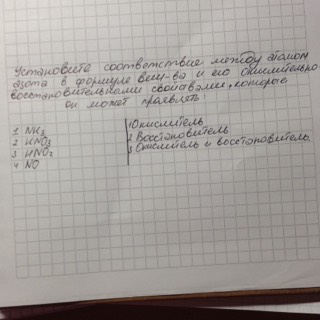 Установите соответствие между атомом
азота в формуле вещ-ва и его окислительно
восстановительными свойствами, которые
он может проявлять:
1 NH3
2 HNO3
3 HNO2
4 NO
1 Окислитель
2 Восстановитель
3 Окислитель и восстановитель